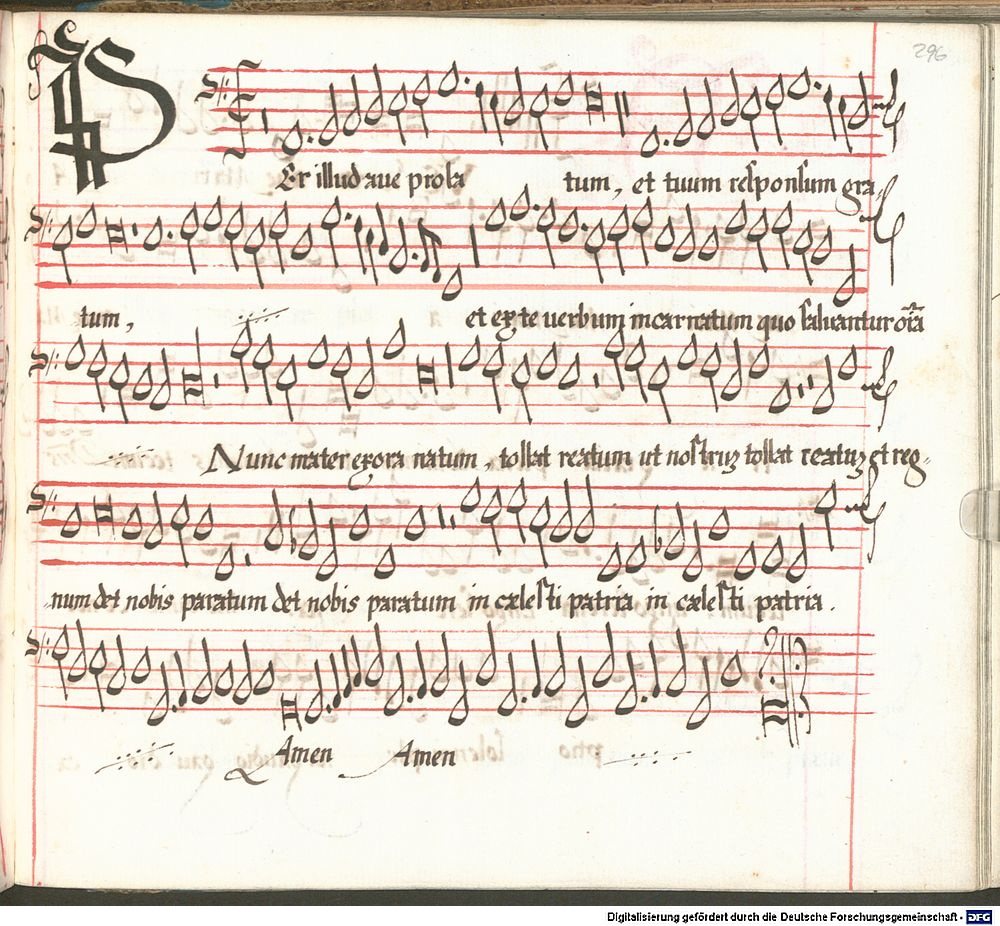 296
PEr illud ave prola tum, et tuum responsum gra-
tum, et ex te verbum incarnatum quo salvantur oīa
Nunc mater exora natum, tollat reatum ut nostruʒ tollat reatuʒ et reg-
num det nobis paratum det nobis paratum in cælesti patria in cælesti patria.
Amen Amen
Digitalisierung gefördert durch die Deutsche Forschungsgemeinschaft - DFG